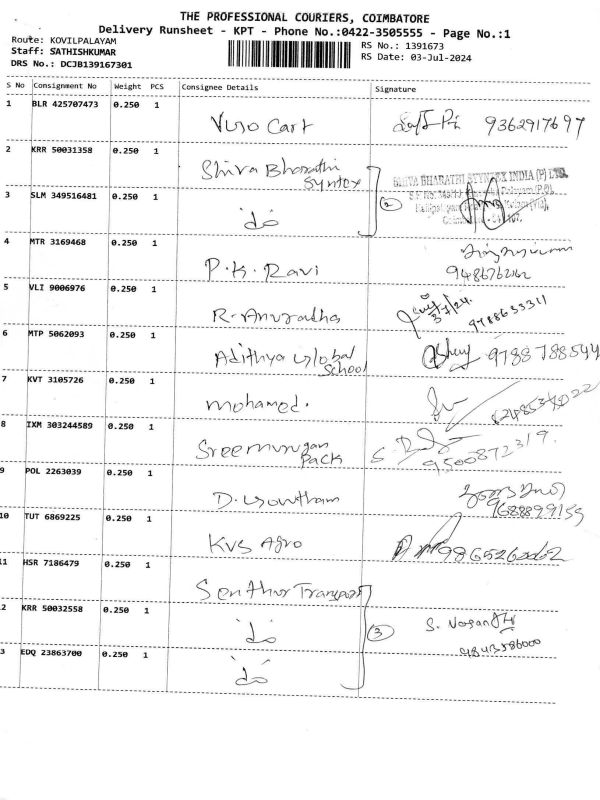 THE PROFESSIONAL COURIERS, COIMBATORE
Delivery Runsheet - KPT - Phone No.:0422-3505555 - Page No.:1
Route: KOVILPALAYAM
Staff: SATHISHKUMAR
DRS No.: DCJB139167301
RS No.: 1391673
RS Date: 03-Jul-2024
S No Consignment No Weight PCS Consignee Details Signature
1 BLR 425707473 0.250 1
Cart 9362917697
2 KRR 50031358 0.250 1
Shiva Bharathi
Syntex
SHIVA BHARATHI SYNTEX INDIA (P) LTD.
3 SLM 349516481 0.250 1
do
2
4 MTR 3169468 0.250 1
P.K. Ravi
5 VLI 9006976 0.250 1
R. Anuradha
3/7/24
9788633311
6 MTP 5062093 0.250 1
Adithya Global
School
9788788544
7 KVT 3105726 0.250 1
Mohamed.
8 IXM 303244589 0.250 1
Sreemurugan
Pack
9500872319.
9 POL 2263039 0.250 1
D. Gowtham
10 TUT 6869225 0.250 1
KVS Agro
11 HSR 7186479 0.250 1
Senthur Transport
2 KRR 50032558 0.250 1
do
3
9843586000
3 EDQ 23863700 0.250 1
do